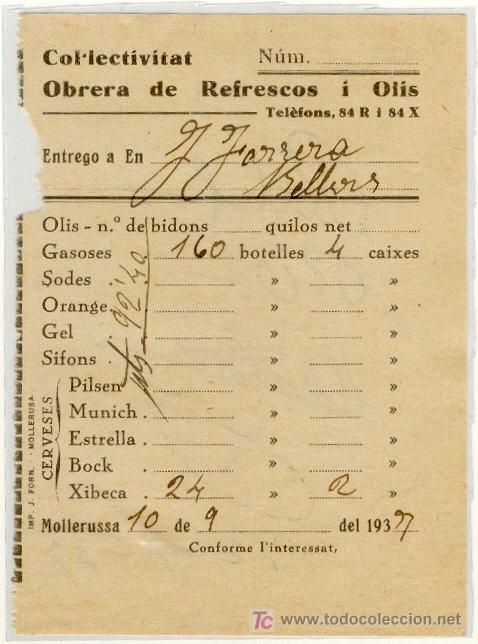 Col·lectivitat Núm.
Obrera de Refrescos i Olis
Telèfons, 84 R i 84 X
Entrego a En J Farrera
Bellvis
Olis - n.º de bidons quilos net
Gasoses 160 botelles 4 caixes
Sodes » »
Orange » »
Gel » »
Sifons » »
Pilsen » »
Munich » »
Estrella » »
Bock » »
Xibeca 24 » 2 »
CERVESES
92'40
Mollerussa 10 de 9 del 1937
Conforme l'interessat,
IMP. J. FORN. - MOLLERUSA
TC www.todocoleccion.net